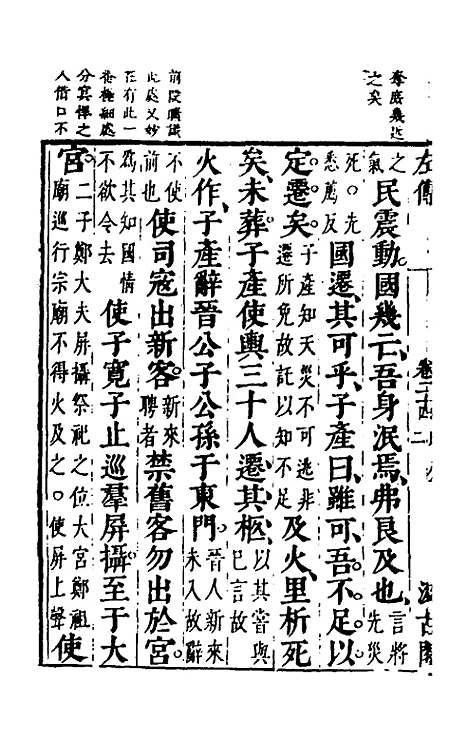 左傳 卷二十四 二 汲古閣
之矣
此處又妙
在有此一
人借口不
之氣民震動國幾亡吾身泯焉弗良及也言將先災
死。先悉薦反國遷其可乎子產曰雖可吾不足以
定遷矣子產知天災不可逃非遷所免故託以知不足及火里析死
矣未葬子產使輿三十人遷其柩以其嘗與已言故
火作子產辭晉公子公孫于東門晉人新來未入故辭
不使前也使司寇出新客新來聘者禁舊客勿出於宮
爲其知國情不欲令去使子寬子止巡羣屏攝至于大
宮二子鄭大夫屏攝祭祀之位大宮鄭祖廟巡行宗廟不得火及之。使屏上聲使